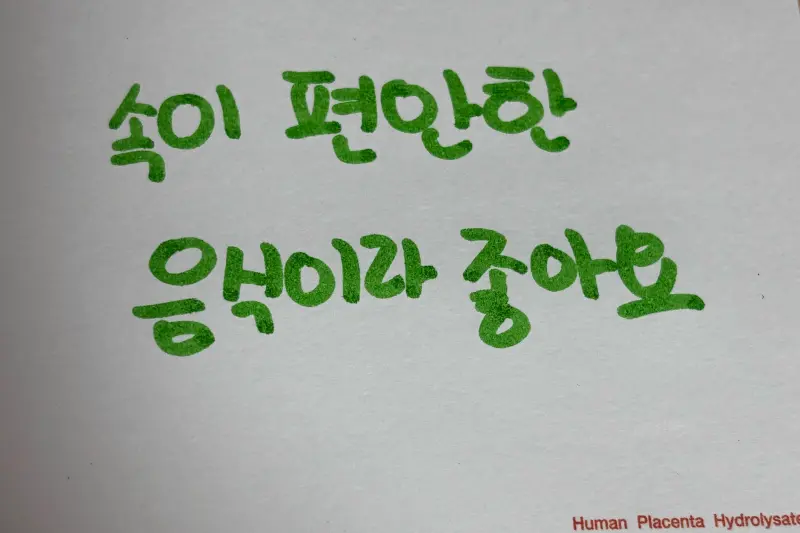 속이 편안한
음식이라 좋아요
Human Placenta Hydrolysate